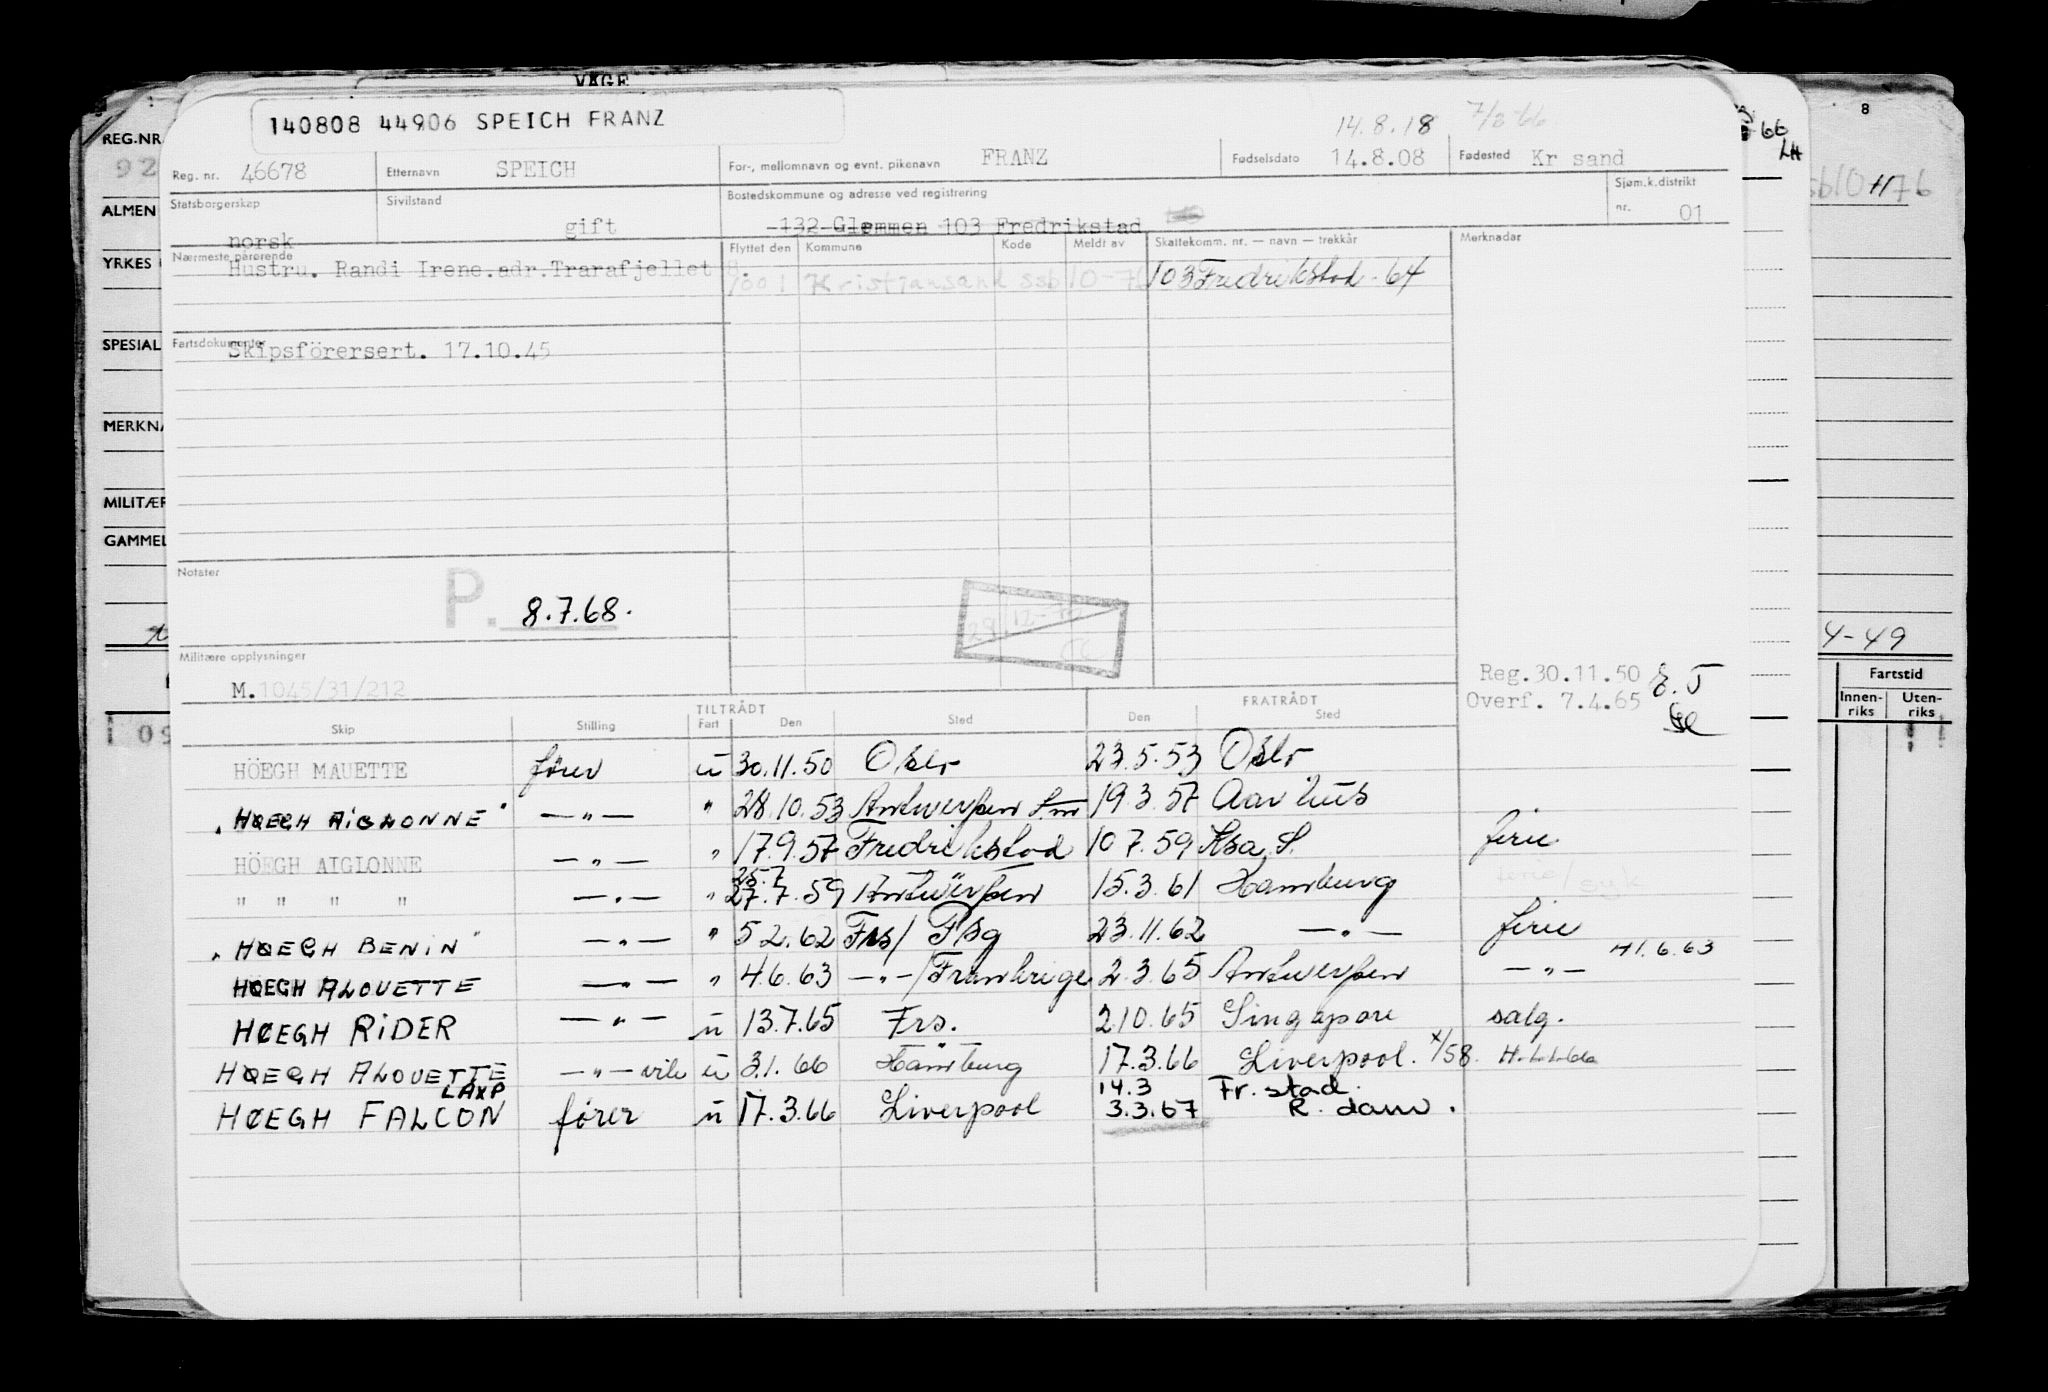 VÅGE
140808 44906 SPEICH FRANZ
14.8.18 7/3-66
8
66
LH
REG.NR
92
Reg. nr. 46678 Etternavn SPEICH For-, mellomnavn og evnt. pikenavn FRANZ Fødselsdato 14.8.08 Fødested Kr sand
ALMEN
Statsborgerskap norsk Sivilstand gift Bostedskommune og adresse ved registrering 132 Glemmen 103 Fredrikstad Sjøm.k.distrikt nr. 01
YRKES
Nærmeste pårørende Flyttet den Kommune Kode Meldt av Skattekomm. nr. — navn — trekkår Merknader
Hustru. Randi Irene.adr.Trarafjellet 8. 1001 Kristiansand ssb 10-76 103 Fredrikstad - 64
SPESIAL
Fartsdokumenter
Skipsförersert. 17.10.45
MERKNA
MILITÆR
GAMMEL
Notater
P. 8.7.68.
4-49
Militære opplysninger
M.1045/31/212
Reg.30.11.50
Overf. 7.4.65
Fartstid
Innen-riks Uten-riks
TILTRÅDT FRATRÅDT
Skip Stilling Fart Den Sted Den Sted
HÖEGH MAUETTE fører u 30.11.50 Oslo 27.5.53 Oslo
"HØEGH AIGLONNE" — " — " 28.10.53 Antwerpen 19.3.57 Aarhus
HÖEGH AIGLONNE — " — " 17.9.57 Fredrikstad 10.7.59 Ksa. S. ferie
25.7
" " " " — " — " 27.7.59 Antwerpen 15.3.61 Hamburg
"HØEGH BENIN" — " — " 5 2.62 Frs/ Psg 23.11.62 — " — ferie
HØEGH ALOUETTE — " — " 4.6.63 — " —/Frankrige 2.3.65 Antwerpen — " — 41.6.63
HØEGH RIDER — " — u 13.7.65 Frs. 2.10.65 Singapore salg.
HØEGH ALOUETTE — " — vik u 3.1.66 Hamburg 17.3.66 Liverpool. x/58.
LAXP 14.3 Fr. stad.
HØEGH FALCON fører u 17.3.66 Liverpool 3.3.67 R. dam.